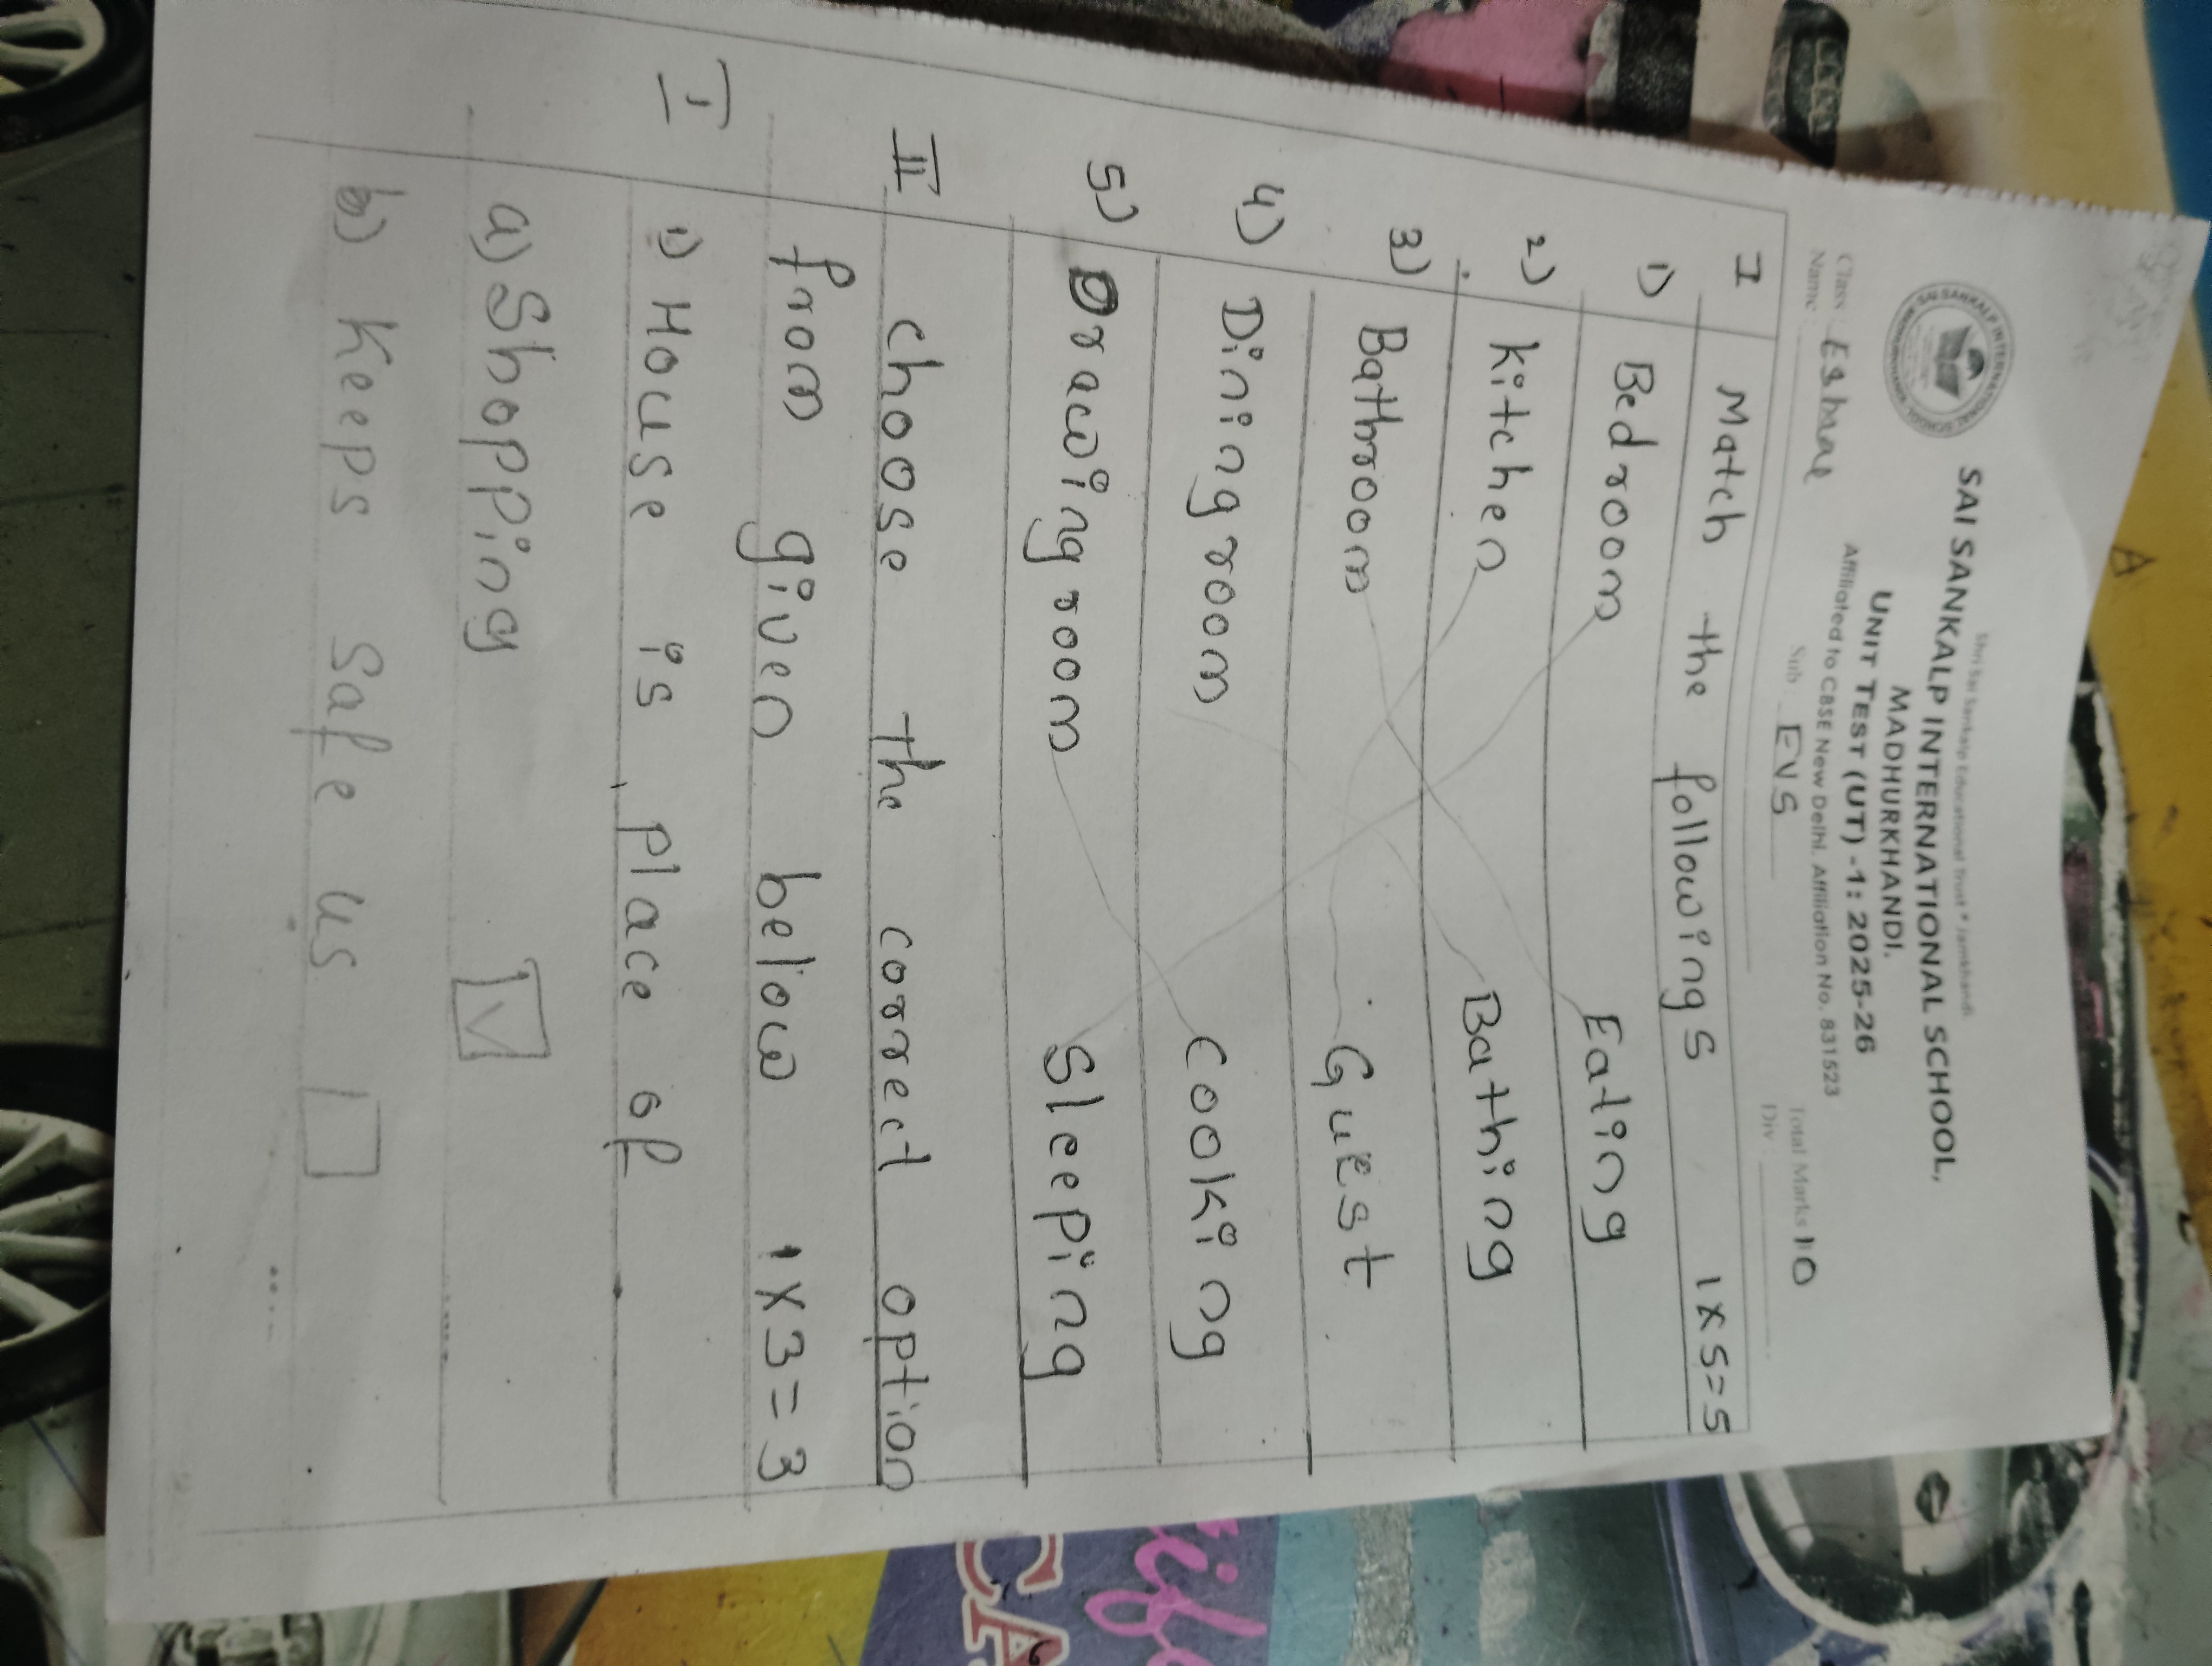 Shri Sai Sankalp Educational Trust Jamkhandi
SAI SANKALP INTERNATIONAL SCHOOL,
MADHURKHANDI.
UNIT TEST (UT) -1: 2025-26
Affiliated to CBSE New Delhi. Affiliation No. 831523
Class: Total Marks 10
Name: Sub: EVS Div:
I Match the followings 1x5=5
1) Bedroom Eating
2) kitchen Bathing
3) Bathroom Guest
4) Dining room cooking
5) Drawing room Sleeping
II choose the correct option
from given below 1x3=3
I 1) House is place of
a) Shopping
b) Keeps Safe us